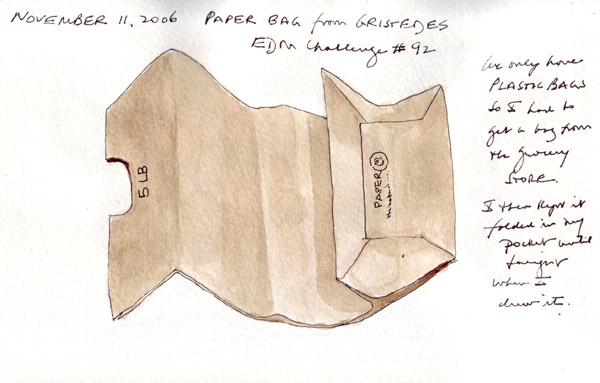 NOVEMBER 11, 2006 PAPER BAG from GRISTEDES
EDM Challenge # 92
We only have
PLASTIC BAGS
So I had to
get a bag from
the grocery
STORE.
I then kept it
folded in my
pocket until
tonight
when I
drew it.
5 LB
PAPER